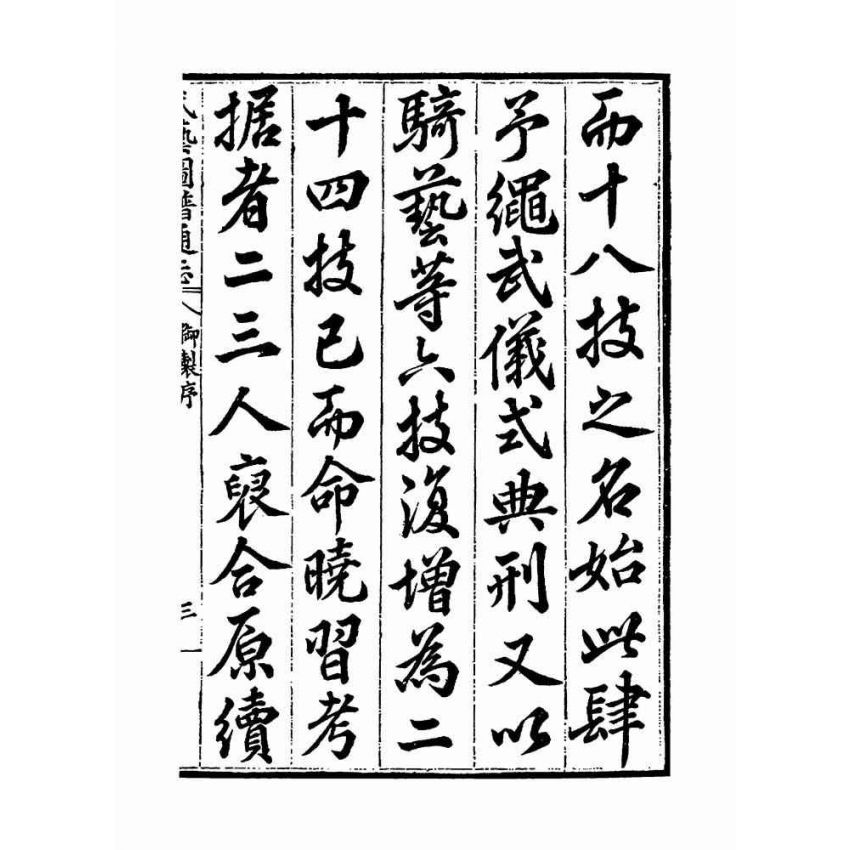 而十八技之名始此肆
予繩武儀式典刑又以
騎藝等六技復增為二
十四技已而命曉習考
据者二三人裒合原續
藝圖譜通志 御製序 三